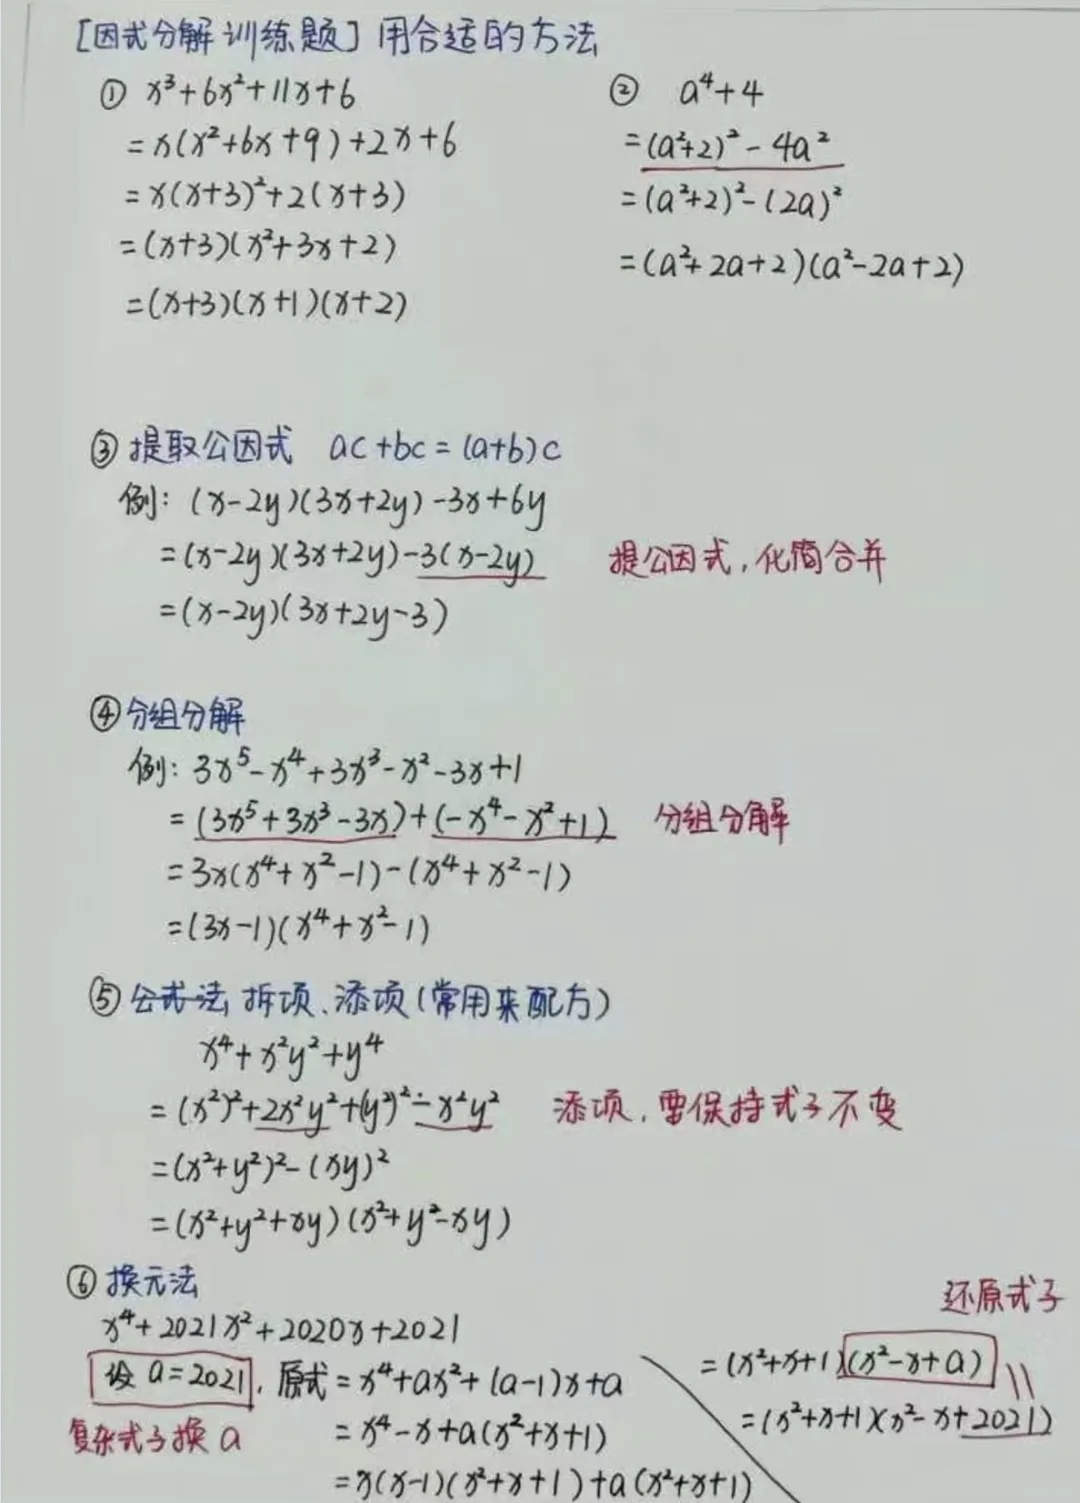 [因式分解训练题] 用合适的方法
① x³+6x²+11x+6
=x(x²+6x+9)+2x+6
=x(x+3)²+2(x+3)
=(x+3)(x²+3x+2)
=(x+3)(x+1)(x+2)
② a⁴+4
=(a²+2)²-4a²
=(a²+2)²-(2a)²
=(a²+2a+2)(a²-2a+2)
③ 提取公因式 ac+bc=(a+b)c
例: (x-2y)(3x+2y)-3x+6y
=(x-2y)(3x+2y)-3(x-2y) 提公因式,化简合并
=(x-2y)(3x+2y-3)
④ 分组分解
例: 3x⁵-x⁴+3x³-x²-3x+1
=(3x⁵+3x³-3x)+(-x⁴-x²+1) 分组分解
=3x(x⁴+x²-1)-(x⁴+x²-1)
=(3x-1)(x⁴+x²-1)
⑤ 公式法 拆项、添项(常用来配方)
x⁴+x²y²+y⁴
=(x²)²+2x²y²+(y²)²-x²y² 添项,要保持式子不变
=(x²+y²)²-(xy)²
=(x²+y²+xy)(x²+y²-xy)
⑥ 换元法
x⁴+2021x²+2020x+2021
设 a=2021, 原式=x⁴+ax²+(a-1)x+a
复杂式子换 a
=x⁴-x+a(x²+x+1)
=x(x-1)(x²+x+1)+a(x²+x+1)
还原式子
=(x²+x+1)(x²-x+a)
=(x²+x+1)(x²-x+2021)